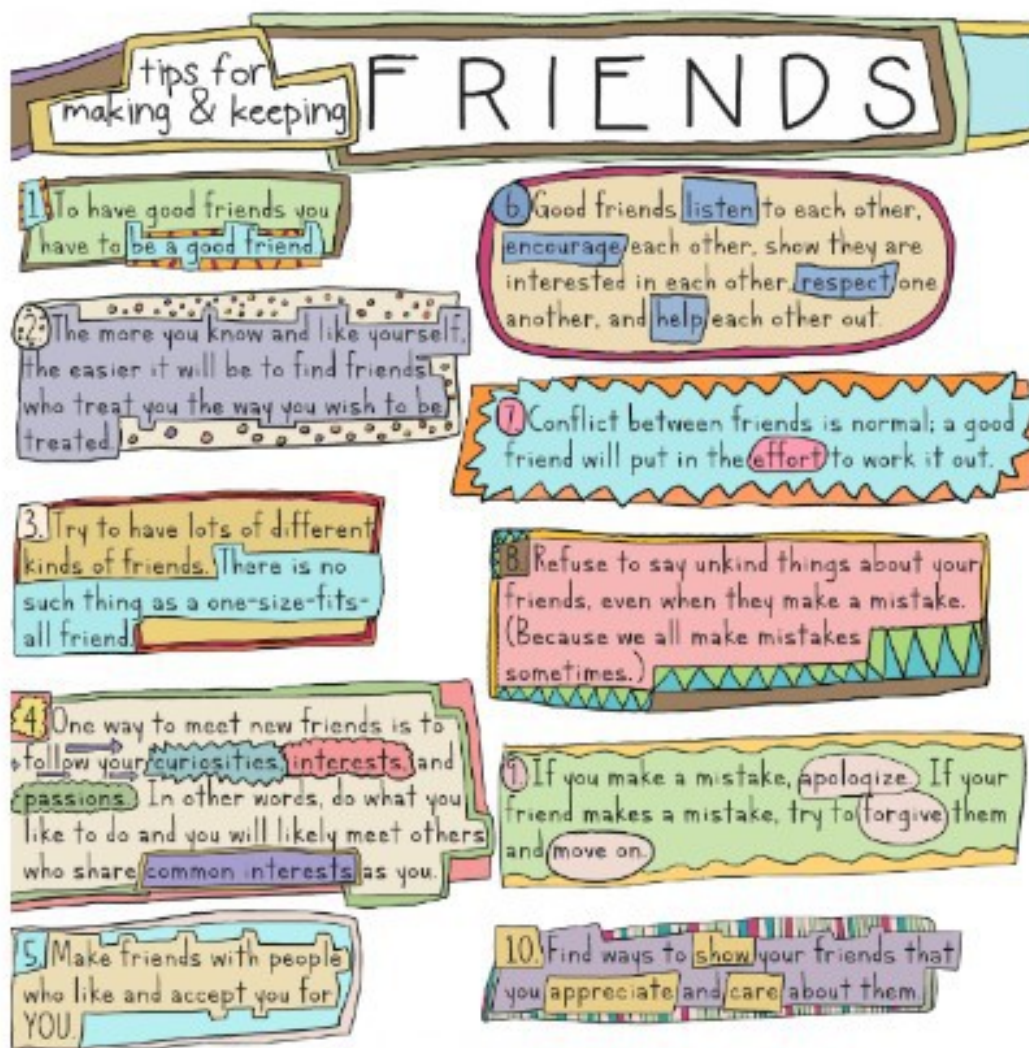 tips for
making & keeping
FRIENDS
1. To have good friends you
have to be a good friend.
2. The more you know and like yourself,
the easier it will be to find friends
who treat you the way you wish to be
treated.
3. Try to have lots of different
kinds of friends. There is no
such thing as a one-size-fits-
all friend.
4. One way to meet new friends is to
follow your curiosities, interests, and
passions. In other words, do what you
like to do and you will likely meet others
who share common interests as you.
5. Make friends with people
who like and accept you for
YOU.
6. Good friends listen to each other,
encourage each other, show they are
interested in each other, respect one
another, and help each other out.
7. Conflict between friends is normal; a good
friend will put in the effort to work it out.
8. Refuse to say unkind things about your
friends, even when they make a mistake.
(Because we all make mistakes
sometimes.)
9. If you make a mistake, apologize. If your
friend makes a mistake, try to forgive them
and move on.
10. Find ways to show your friends that
you appreciate and care about them.